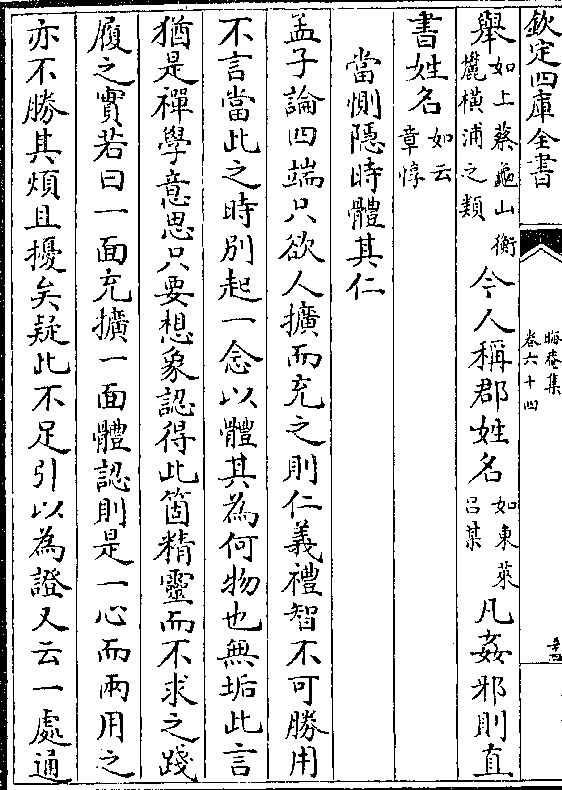 欽定四庫全書
晦菴集
卷六十四
舉如上蔡龜山衡麓橫浦之類今人稱郡姓名如東萊吕某凡姦邪則直
書姓名如云章惇
當惻隱時體其仁
孟子論四端只欲人擴而充之則仁義禮智不可勝用
不言當此之時别起一念以體其為何物也無垢此言
猶是禪學意思只要想象認得此箇精靈而不求之踐
履之實若曰一面充擴一面體認則是一心而兩用之
亦不勝其煩且擾矣疑此不足引以為證又云一處通